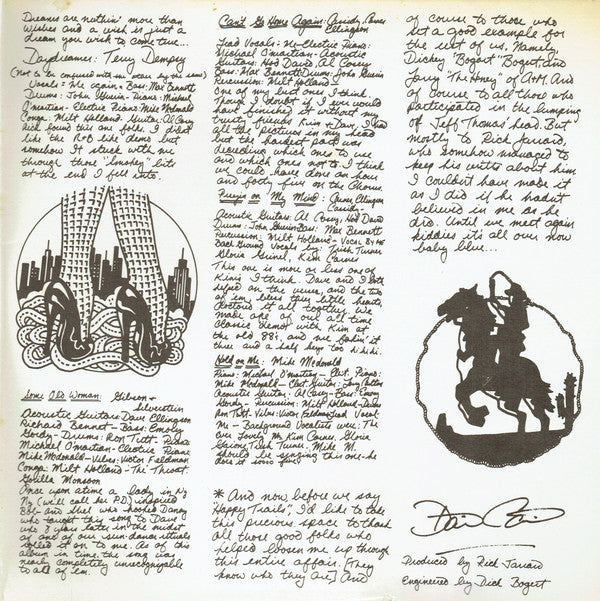 Dreams are nuthin' more than
wishes and a wish is just a
dream you wish to come true...
Daydreamer: Terry Dempsy
(Not to be confused with one wear by the same)
Vocals: Me again - Bass: Max Bennett
Drums: John Guerin - Piano: Michael
O'martian - Electric Piano: Mike Mcdonald
Conga: Milt Holland - Guitar: Al Casey
Rick found this one folks. I didn't
like the R & B like demo but
somehow it stuck with me
through those "smokey" bits
at the end I fell into.
Some Old Woman: Gibson &
Silverstein
Acoustic Guitar: Dave Ellingson
Richard Bennet - Bass: Emory
Gordy - Drums: Ron Tutt - Piano:
Michael O'martian - Electric Piano:
Mike McDonald - Vibes: Victor Feldman
Conga: Milt Holland - The Throat:
Gorilla Monsoon
Once upon a time a lady in N.Y.
(we'll call her P.D.) inspired
Bob and Shel who hooked Danny
who taught this song to Dave
who 8 years later in the midst
of one of our sun-dance rituals
rolled it on to me. As of this
album in time the song was
nearly completely unrecognizable
to all of 'em.
Can't Go Home Again: Cassidy, Carnes
Ellingson
Lead Vocals: Me - Electric Piano:
Michael O'martian - Acoustic
Guitars: Hod David, Al Casey
Bass: Max Bennett Drums: John Guerin
Percussion: Milt Holland
One of my best ones I think.
Though I doubt if I ever would
have finished it without my
trusty friends Kim & Dave. I had
all the pictures in my head
but the hardest part was
deciding which ones to use
and which ones not to. I think
we could have done an hour
and forty five on the Chorus.
Preyin on My Mind: Carnes, Ellingson
Cassidy
Acoustic Guitars: Al Casey, Hod David
Drums: John Guerin Bass: Max Bennett
Percussion: Milt Holland - Vocal By Me
Back Ground Vocals by: Trish Turner
Gloria Grinel, Kim Carnes
This one is more or less one of
Kim's I think. Dave and I both
helped on the verses, and the two
of 'em, bless they little hearts,
doctored it all together. We
made one of our all time
classic demos with Kim at
the old 88's, and me
three and a half keys too hi hi hi.
Hold on Me: Mike Mcdonald
Piano: Michael O'martian - Elect. Piano:
Mike Mcdonald - Elect. Guitar: Larry Carlton
Acoustic Guitar: Al Casey - Bass: Emory
Gordy - Percussion: Milt Holland - Drums:
Ron Tutt - Vibes: Victor Feldman Lead Vocal:
Me - Background Vocalists were: The
ever lovely Ms. Kim Carnes, Gloria
Grinel, Trish Turner. Mike M.
should be singing this one - he
does it sooo fine.
* And now, before we say
"Happy Trails", I'd like to take
this precious space to thank
all those good folks who
helped loosen me up through
this entire affair. [They
know who they are] And
of course to those who
set a good example for
the rest of us. Namely,
Dickey "Bogart" Bogert and
Larry "The Honey" of A&M. And
of course to all those who
participated in the lumping
of Jeff Thomas' head. But
mostly to Rick Jarrard,
who somehow managed to
keep his writes about him
I couldn't have made it
as I did if he hadn't
believed in me as he
did. Until we meet again
kiddies it's all over now
baby blue...
Produced by Rick Jarrard
Engineered by Dick Bogert